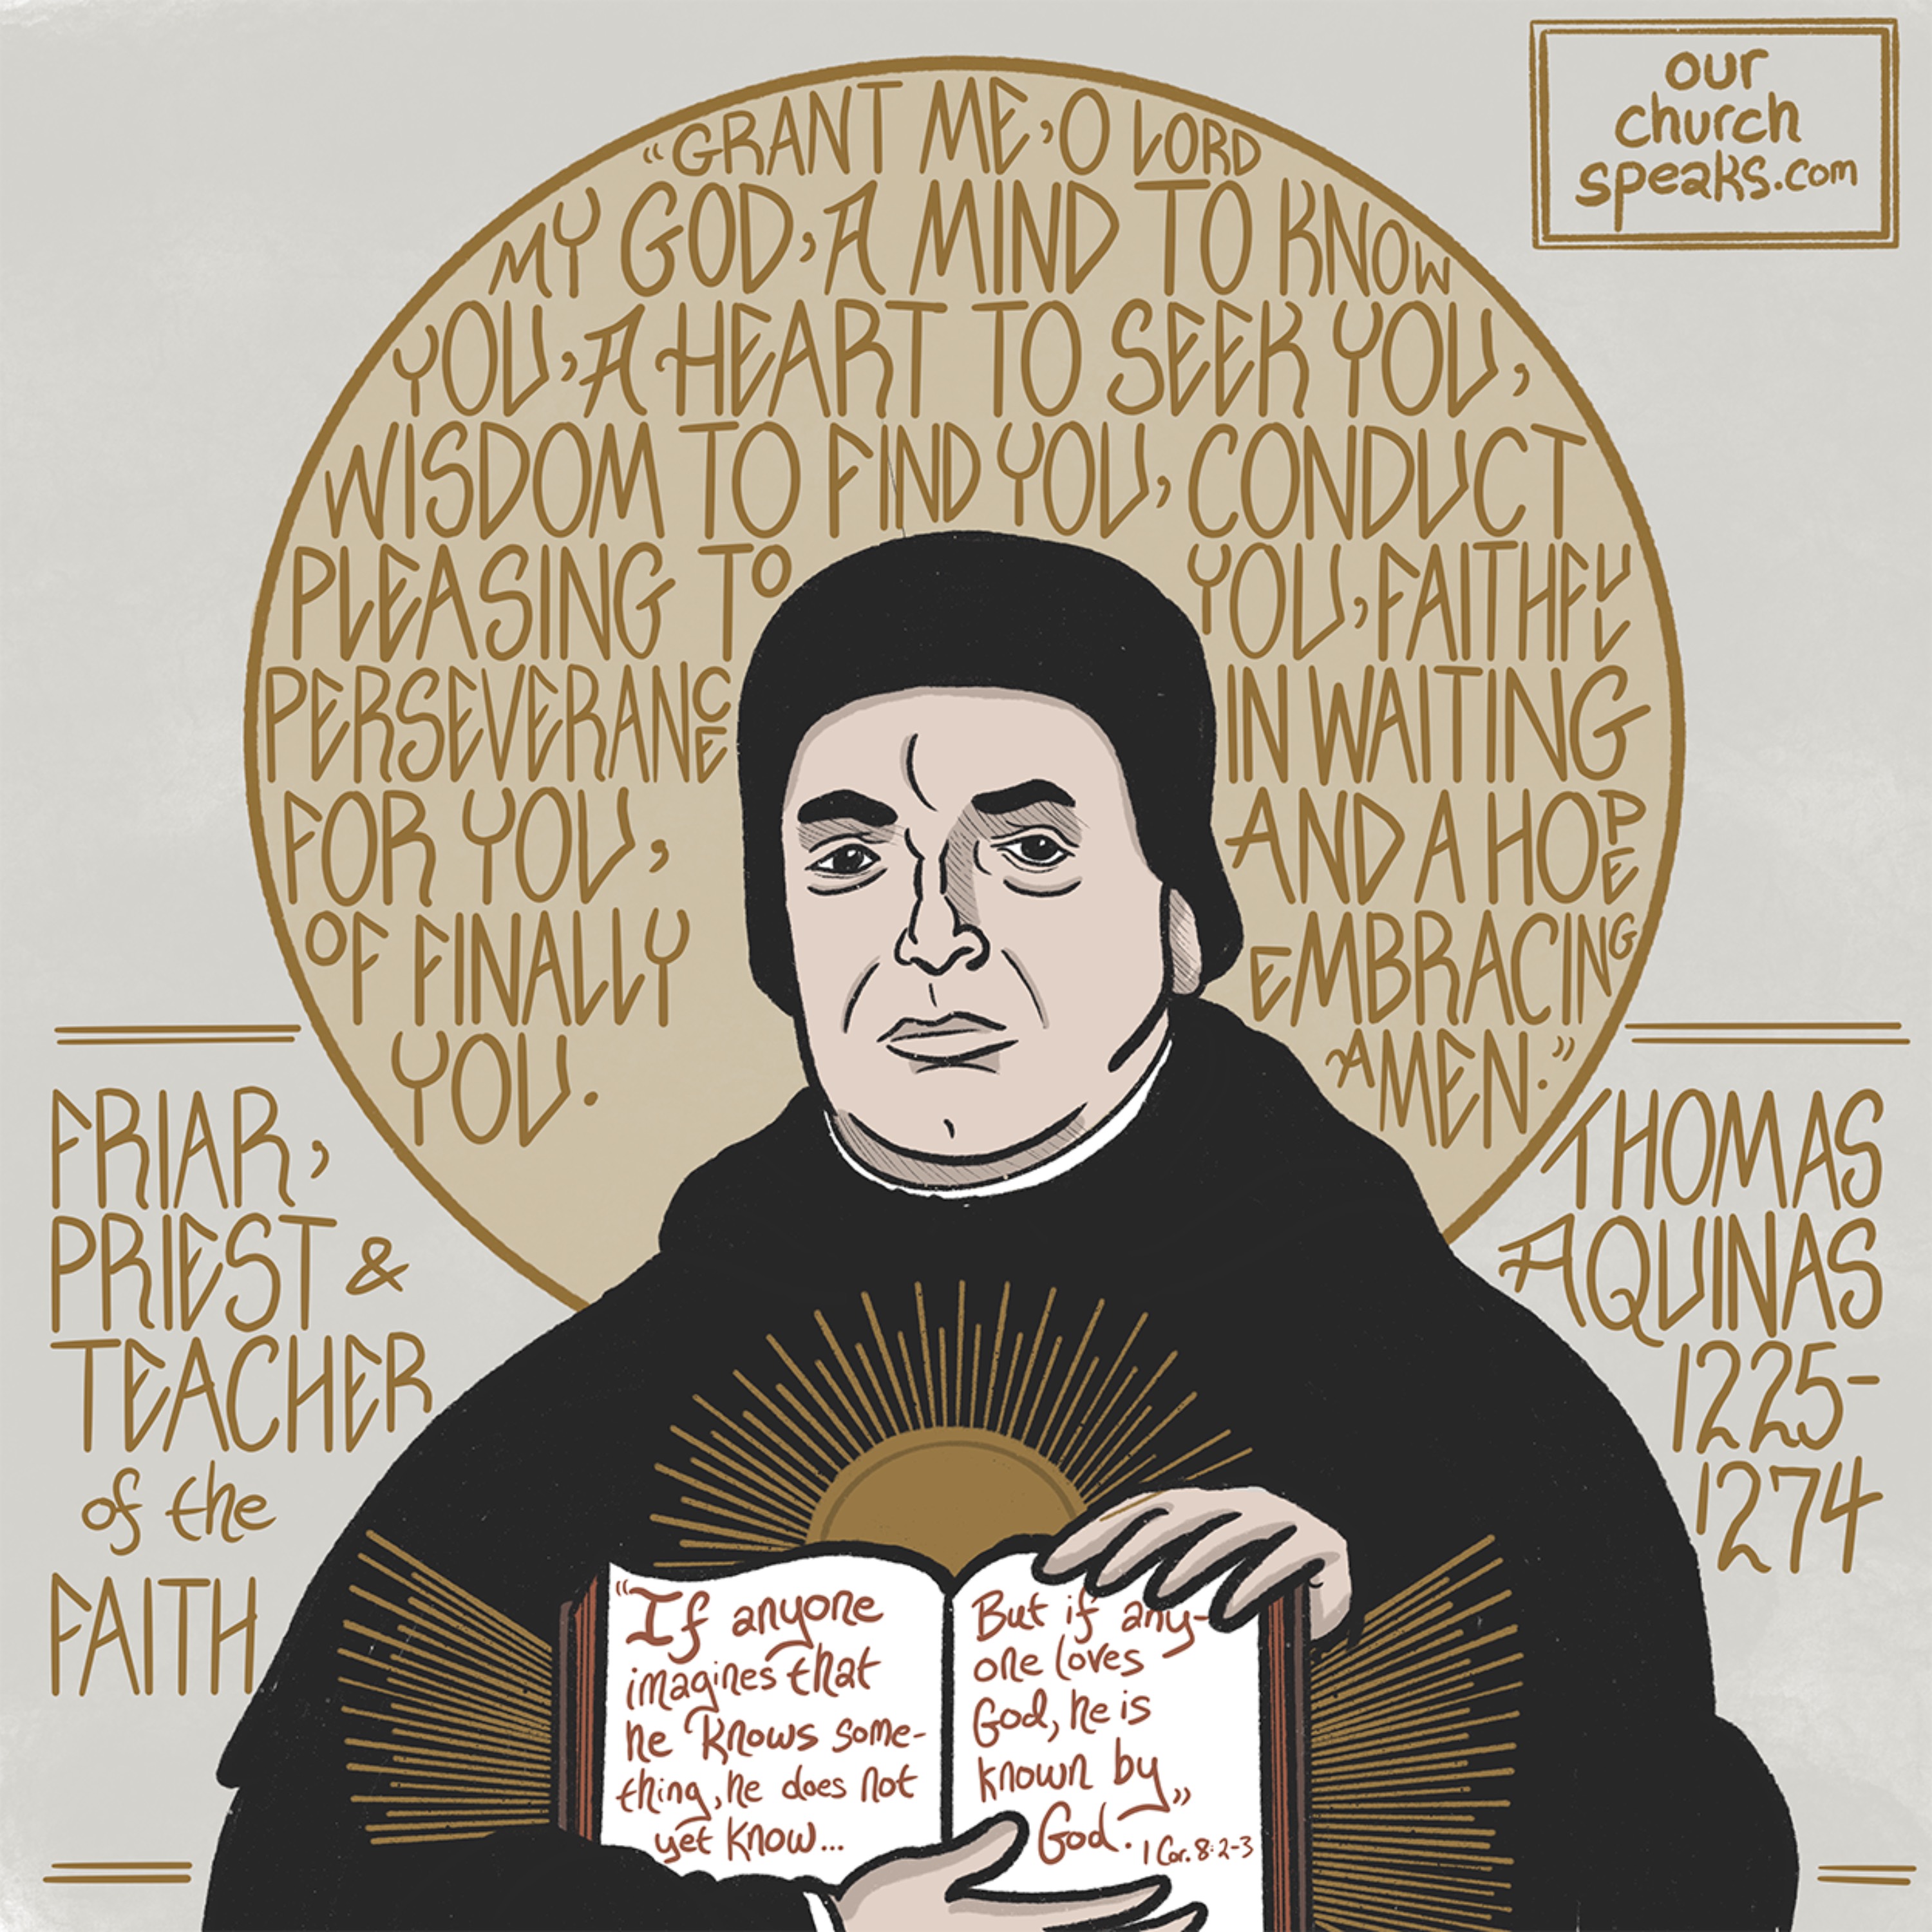 our
church
speaks.com
“GRANT ME, O LORD
MY GOD, A MIND TO KNOW
YOU, A HEART TO SEEK YOU,
WISDOM TO FIND YOU, CONDUCT
PLEASING TO YOU, FAITHFUL
PERSEVERANCE IN WAITING
FOR YOU, AND A HOPE
OF FINALLY EMBRACING
YOU. AMEN.”
FRIAR,
PRIEST &
TEACHER
of the
FAITH
THOMAS
AQUINAS
1225-
1274
“If anyone
imagines that
he knows some-
thing, he does not
yet know...
But if any-
one loves
God, he is
known by
God.”
1 Cor. 8:2-3